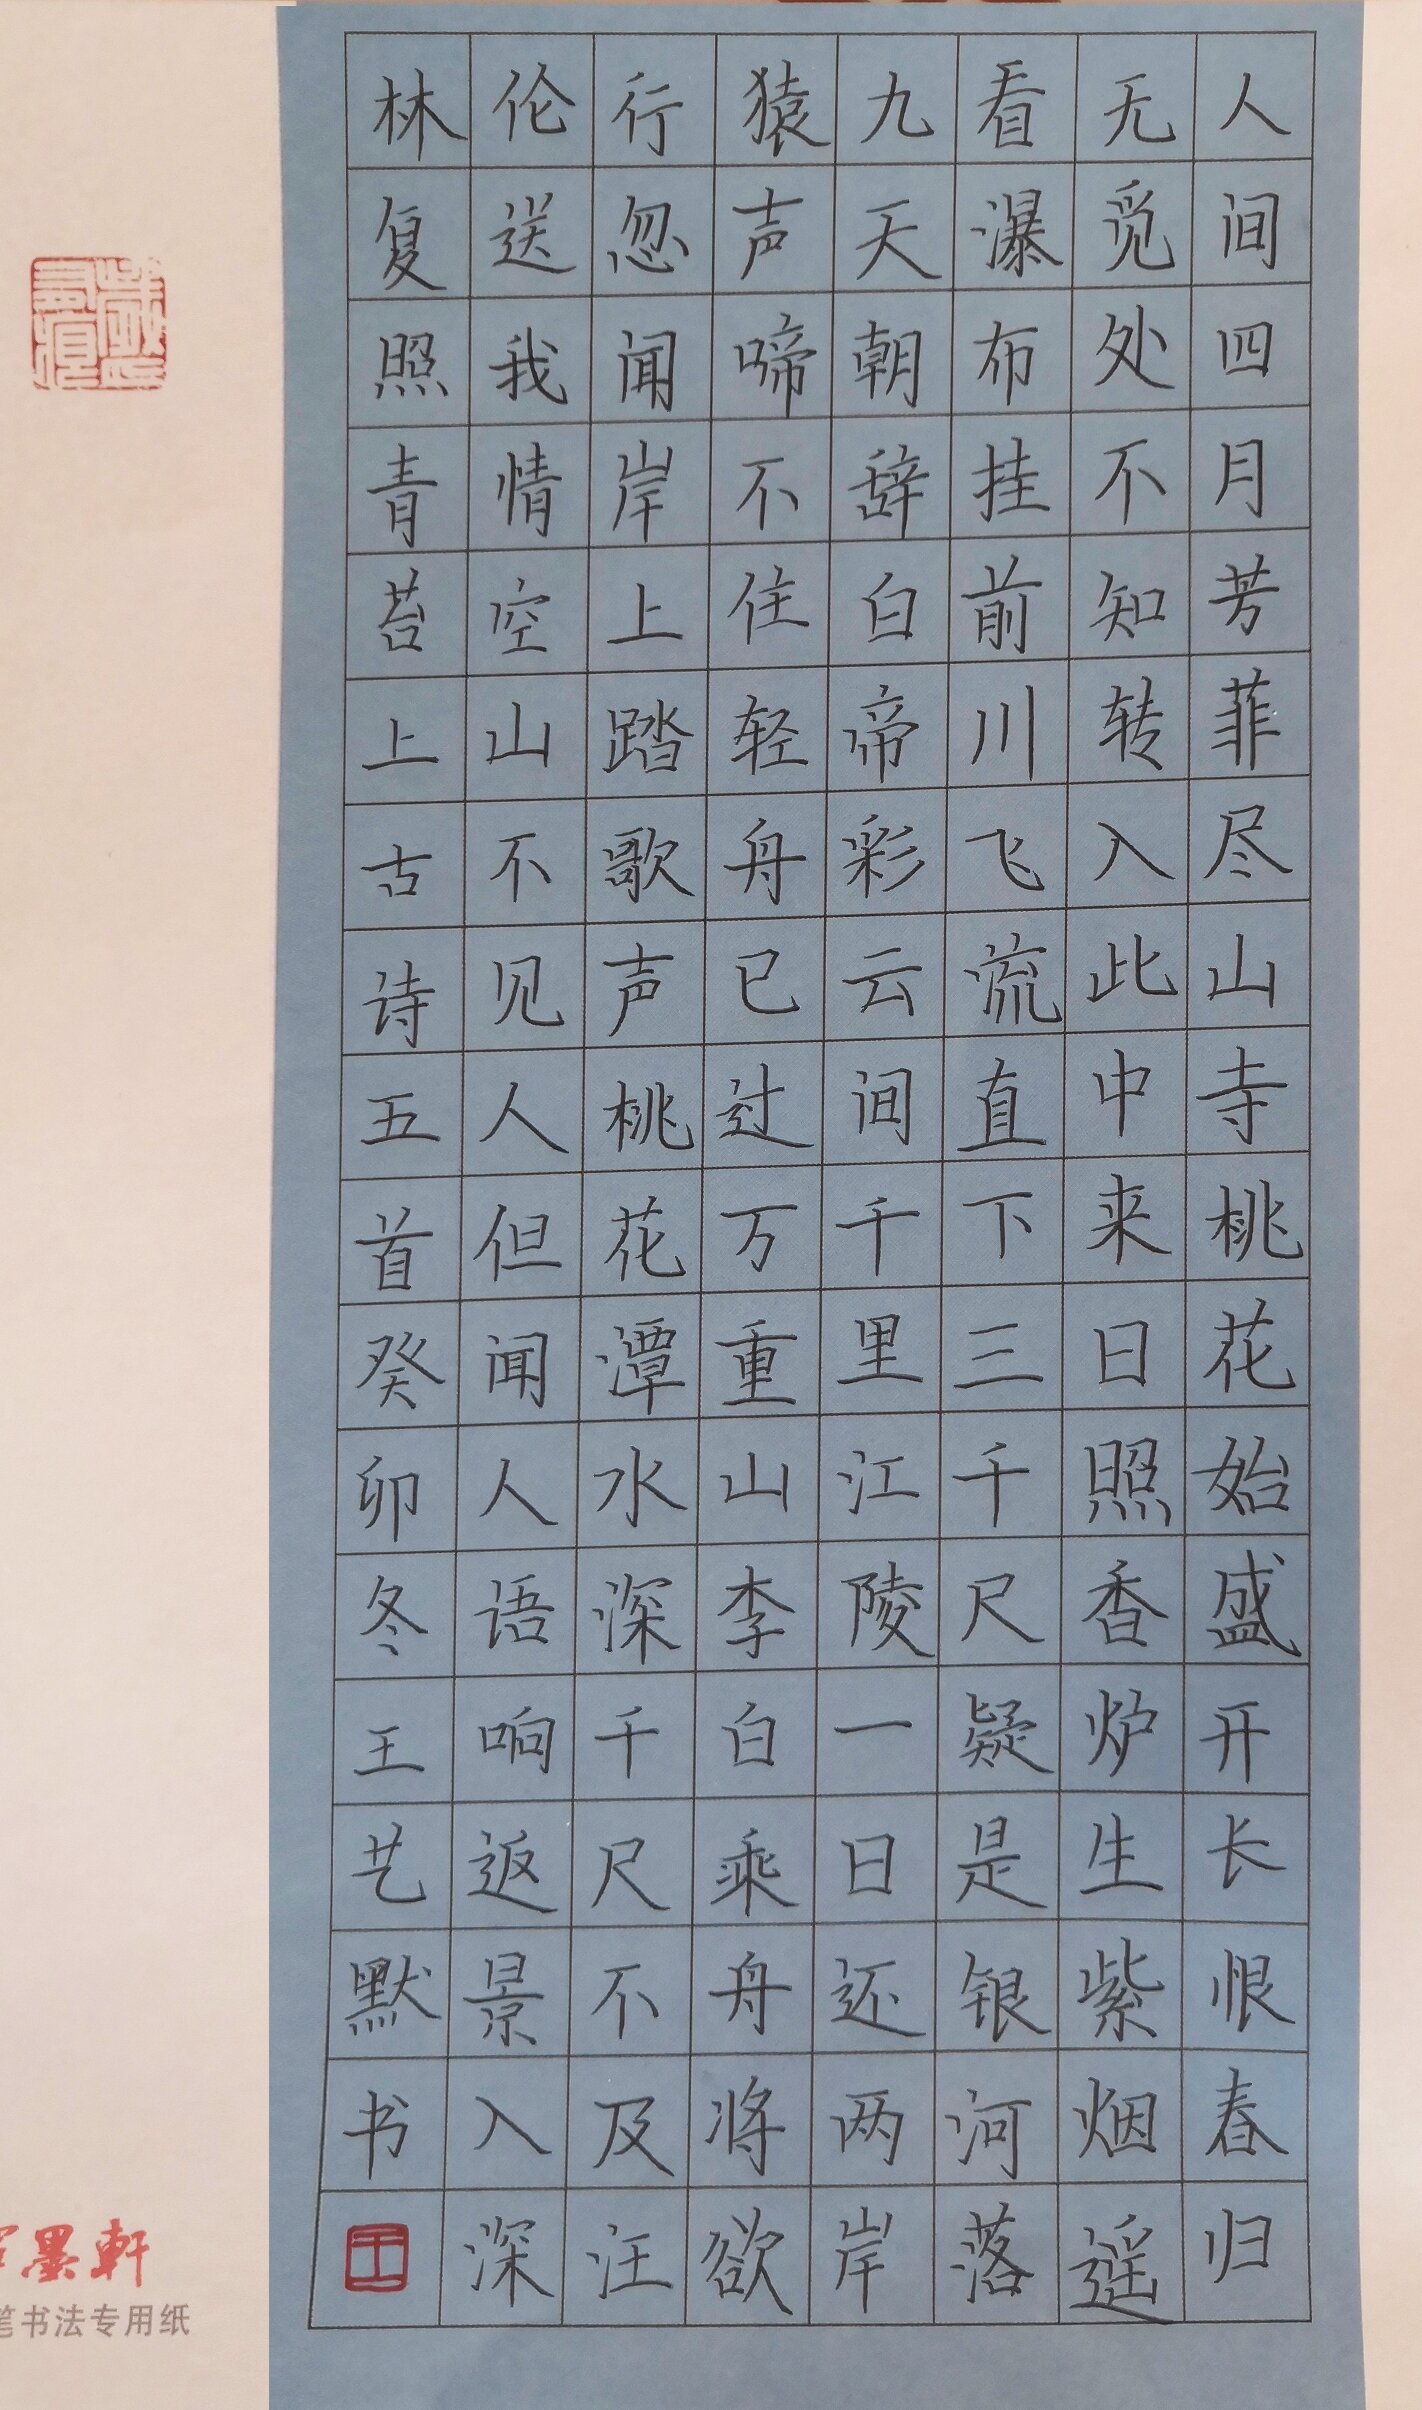 人间四月芳菲尽山寺桃花始盛开长恨春归
无觅处不知转入此中来日照香炉生紫烟遥
看瀑布挂前川飞流直下三千尺疑是银河落
九天朝辞白帝彩云间千里江陵一日还两岸
猿声啼不住轻舟已过万重山李白乘舟将欲
行忽闻岸上踏歌声桃花潭水深千尺不及汪
伦送我情空山不见人但闻人语响返景入深
林复照青苔上古诗五首癸卯冬王艺默书
王
墨軒
笔书法专用纸